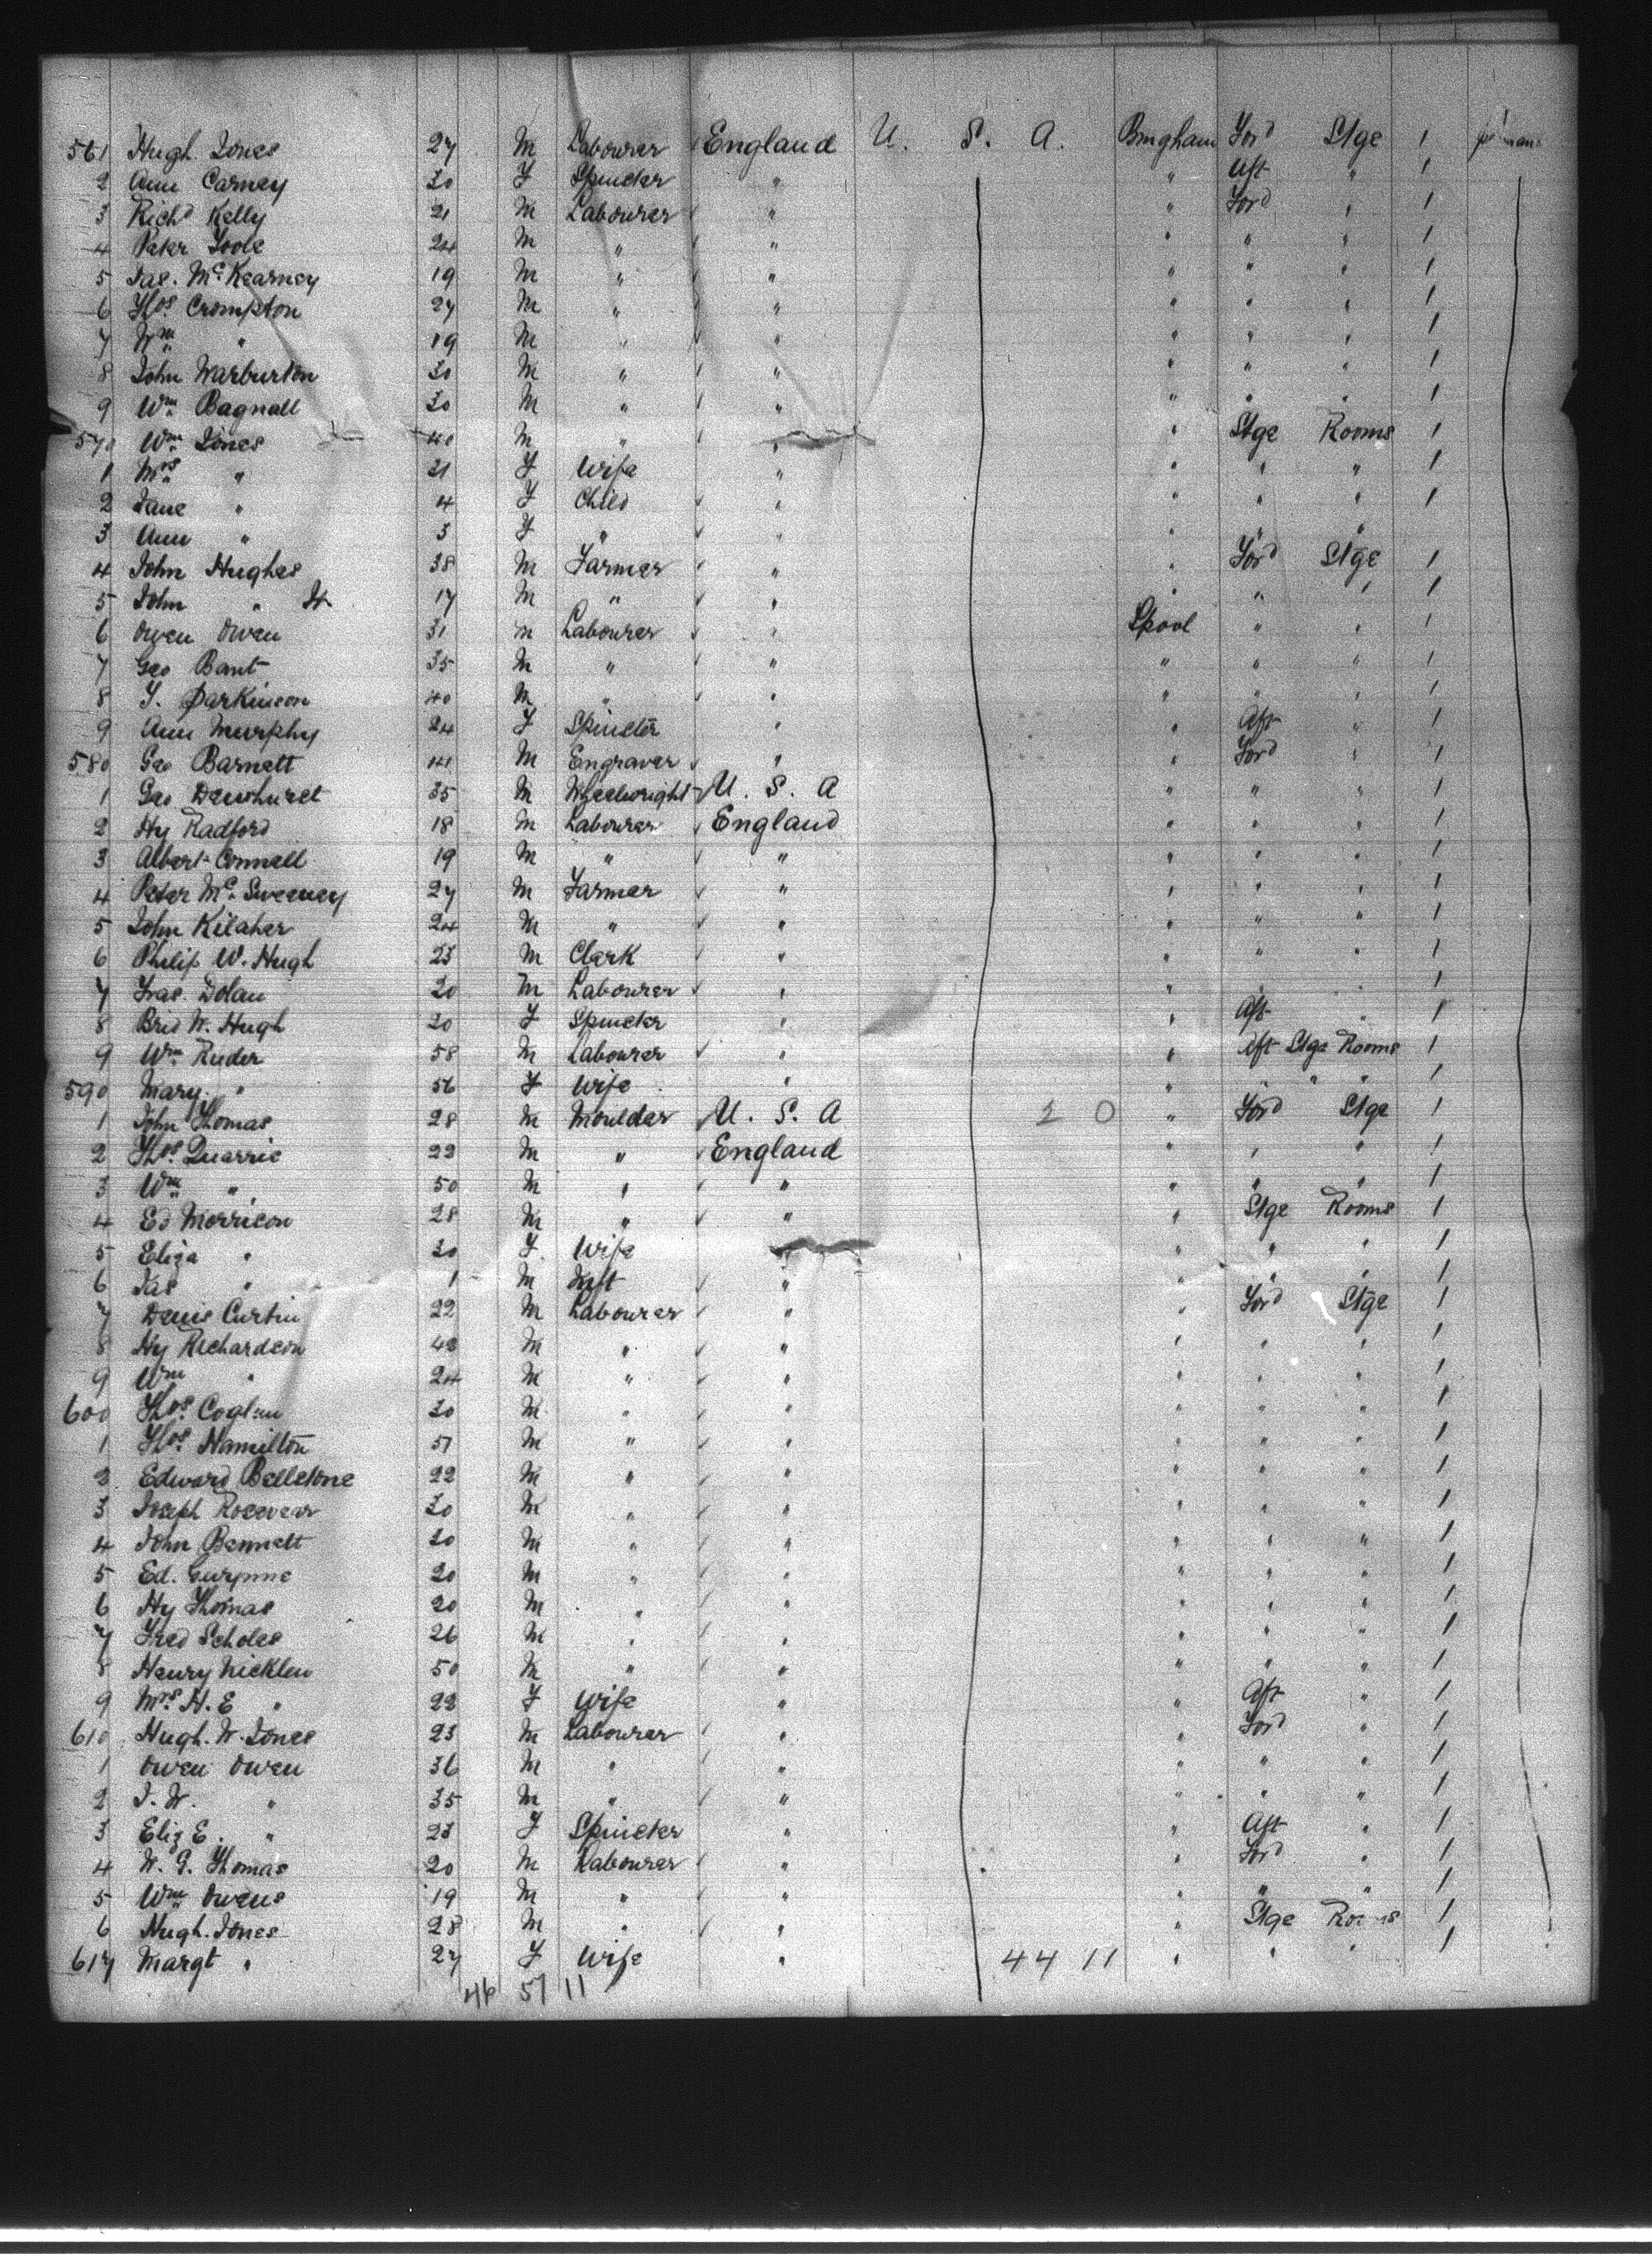 561 Hugh Jones 27 M Labourer England U. S. A. Bmgham Ford Stge 1
2 Ann Carney 30 F Spinster " " Aft " 1
3 Richd Kelly 21 M Labourer " " Ford " 1
4 Peter Toole 24 M " " " " " 1
5 Jas. McKearney 19 M " " " " " 1
6 Thos. Crompton 27 M " " " " " 1
7 Wm " 19 M " " " " " 1
8 John Warburton 30 M " " " " " 1
9 Wm Bagnall 30 M " " " " " 1
570 Wm Jones 40 M " " " Stge Rooms 1
1 Mrs " 21 F Wife " " " " 1
2 Jane " 4 F Child " " " " 1
3 Ann " 3 F " " " " "
4 John Hughes 38 M Farmer " " Ford Stge 1
5 John " Jr 17 M " " " " " 1
6 Owen Owen 31 M Labourer " Lpool " " 1
7 Geo Bant 35 M " " " " " 1
8 T. Parkinson 40 M " " " " " 1
9 Ann Murphy 24 F Spinster " " Aft " 1
580 Geo Barnett 41 M Engraver " " Ford " 1
1 Geo Dewhurst 35 M Wheelwright U. S. A " " " 1
2 Hy Radford 18 M Labourer England " " " 1
3 Albert Connell 19 M " " " " " 1
4 Peter Mc Sweeney 27 M Farmer " " " " 1
5 John Kilaher 24 M " " " " " 1
6 Philip W. Hugh 23 M Clerk " " " " 1
7 Fras. Dolan 20 M Labourer " " " " 1
8 Brid W. Hugh 20 F Spinster " " Aft " 1
9 Wm Ruder 58 M Labourer " " Aft Stge Rooms 1
590 Mary " 56 F Wife " " " " " 1
1 John Thomas 28 M Moulder U. S. A 1 0 " Ford Stge 1
2 Thos. Quarrie 22 M " England " " " 1
3 Wm " 50 M " " " " " 1
4 Ed Morrison 28 M " " " Stge Rooms 1
5 Eliza " 30 F Wife " " " " 1
6 Jas " 1 M Inft " " " " 1
7 Denis Curtin 22 M Labourer " " Ford Stge 1
8 Hy Richardson 42 M " " " " " 1
9 Wm " 24 M " " " " " 1
600 Thos. Coglan 30 M " " " " " 1
1 Thos. Hamilton 51 M " " " " " 1
2 Edward Bellstone 22 M " " " " " 1
3 Joseph Rosevear 30 M " " " " " 1
4 John Bennett 20 M " " " " " 1
5 Ed. Gwynne 20 M " " " " " 1
6 Hy Thomas 20 M " " " " " 1
7 Fred Scholes 26 M " " " " " 1
8 Henry Nicklen 50 M " " " " " 1
9 Mrs. H. E " 22 F Wife " " Aft " 1
610 Hugh. W. Jones 23 M Labourer " " Ford " 1
1 Owen Owen 36 M " " " " " 1
2 J. W. " 35 M " " " " " 1
3 Eliz E. " 23 F Spinster " " Aft " 1
4 W. G. Thomas 20 M Labourer " " Ford " 1
5 Wm Owens 19 M " " " " " 1
6 Hugh. Jones 28 M " " " Stge Rooms 1
617 Margt " 27 F Wife " 44 11 " " " 1
46 57 11